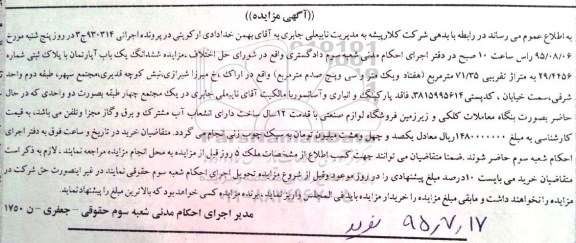 ((آگهی مزایده))
به اطلاع عموم می رساند در رابطه با بدهی شرکت کلارپیشه به مدیریت نابیعلی جابری به آقای بهمن خدادادی ارکوینی در پرونده اجرائی ۹۳۰۳۱۴ج۳ در روز پنج شنبه مورخ
۹۵/۰۸/۰۶ راس ساعت ۱۰ صبح در دفتر اجرای احکام مدنی شعبه سوم دادگستری واقع در شورای حل اختلاف، مزایده ششدانگ یک باب آپارتمان با پلاک ثبتی شماره
۲۹/۴۴۵۶ به متراژ تقریبی ۷۱/۳۵ مترمربع (هفتاد ویک متر و سی وپنج صدم مترمربع) واقع در اراک ،خ میرزا شیرازی،نبش کوچه قدیری،مجتمع سپهر، طبقه دوم واحد
شرقی،سمت خیابان ، کدپستی ۳۸۱۵۹۹۵۶۱۴، فاقد پارکینگ و انباری وآسانسوربا مالکیت آقای نابیعلی جابری در یک مجتمع چهار طبقه بصورت دو واحدی که در حال
حاضر بصورت بنگاه معاملات کلکی و زیرزمین فروشگاه لوازم صنعتی با قدمت ۱۲سال ساخت دارای انشعاب آب مشترک و برق وگاز مجزا وتلفن می باشد، به قیمت
کارشناسی به مبلغ ۱۴۸۰۰۰۰۰۰۰ریال معادل یکصد و چهل وهشت میلیون تومان به سبک چوب زنی انجام می گردد. متقاضیان خرید در تاریخ و ساعت فوق به دفتر اجرای
احکام شعبه سوم حاضر شوند .ضمنا متقاضیان می توانند جهت کسب اطلاع از مشخصات ملک ۵ روز قبل از مزایده به محل انجام مزایده مراجعه نمایند . لازم به ذکر است
متقاضیان خرید می بایست ۱۰درصد مبلغ پیشنهادی را در روز موعود وقبل از شروع مزایده تحویل اجرای احکام شعبه سوم حقوقی نمایند در غیر اینصورت حق شرکت در
مزایده را نخواهند داشت و مابقی مبلغ مزایده را خریدار مزایده باید فی المجلس واریز نماید. برنده مزایده کسی خواهد بود که بالاترین مبلغ را پیشنهاد نماید.
مدیر اجرای احکام مدنی شعبه سوم حقوقی – جعفری – ن ۱۷۵۰
۹۵٫۷٫۱۷